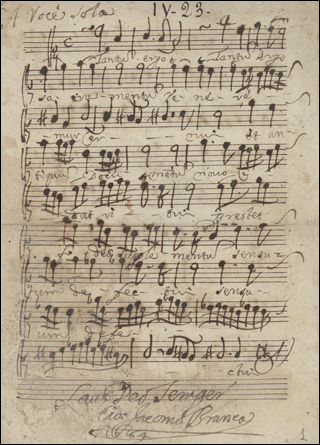 A Voce sola
IV-23.
Tantu ergo Tantu ergo
sa cra mentu Ve ne re
mur cer nui et an
tiquu Docu mētu novo C
dat ri tui prestet
fi des suple mentu sensu-
um de- fec- tui sensu-
um defec
ctui
Laus Deo Semper
Gio Jacomo Branca
1